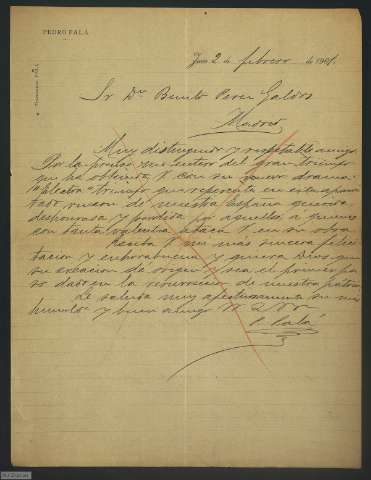 PEDRO PALÁ
2 de febrero de 1901.
Sr Dn Benito Perez Galdós
Madrid
Muy distinguido y respetable amigo:
Por la prensa me entero del gran triunfo
que ha obtenido V. con su nuevo drama
"Electra" triunfo que representa en esta aparta
do rincon de nuestra España querida
deshonrada y perdida por aquellos a quienes
con tanta valentia ataca V. en su obra.
Reciba V. mi más sincera felici-
tacion y enhorabuena y quiera Dios que
su creacion dé origen y sea el primer pa
so dado en la resurreccion de nuestra patria.
Le saluda muy afectuosamente su
y buen amigo
P. Palá